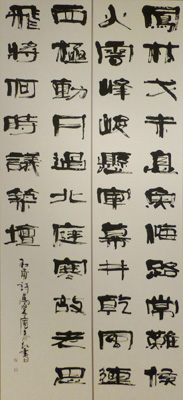 鳳林戈未息魚海路常難候
火雲峰峻懸軍幕井乾風連
西極動月過北庭寒故老思
飛將何時議築壇